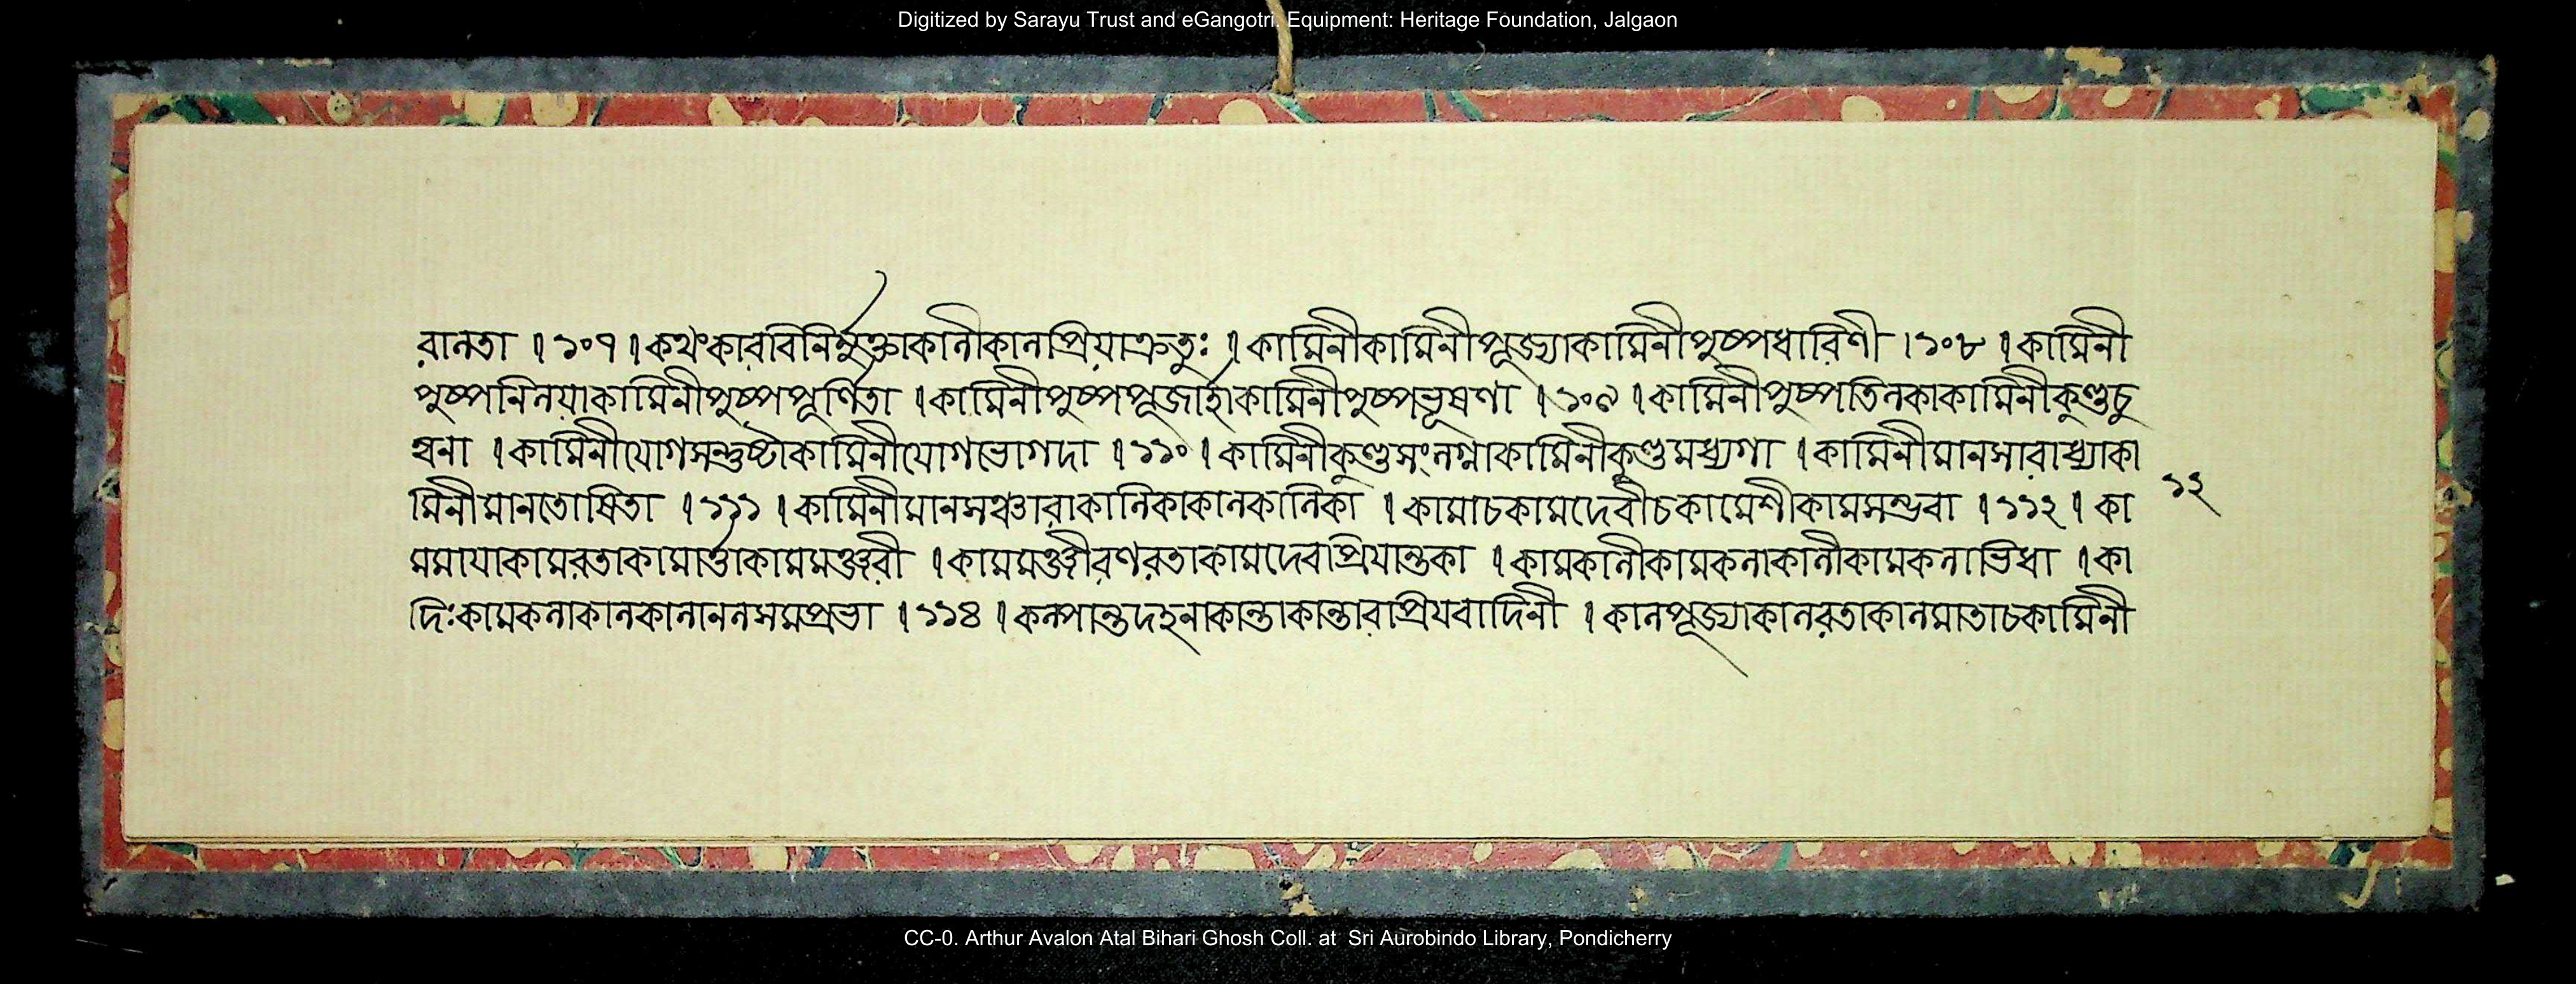 Digitized by Sarayu Trust and eGangotri. Equipment: Heritage Foundation, Jalgaon
রানতা । ১০৭ । কথংকারবিনির্ম্মুক্তাকানীকানপ্রিয়াক্রতুঃ । কামিনীকামিনীপূজ্যাকামিনীপুষ্পধারিণী । ১০৮ । কামিনী
পুষ্পনিনয়াকামিনীপুষ্পপূর্ণিতা । কামিনীপুষ্পপূজার্হাকামিনীপুষ্পভূষণা । ১০৯ । কামিনীপুষ্পতিনকাকামিনীকুণ্ডচু
ম্বনা । কামিনীযোগসন্তুষ্টাকামিনীযোগভোগদা । ১১০ । কামিনীকুণ্ডসংনগ্নাকামিনীকুণ্ডমধ্যগা । কামিনীমানসারাধ্যাকা
মিনীমানতোষিতা । ১১১ । কামিনীমানসঞ্চারাকানিকাকানকানিকা । কামাচকামদেবীচকামেশীকামসম্ভবা । ১১২ । কা
মমায়াকামরতাকামার্ত্তাকামমঞ্জরী । কামমঞ্জীরণরতাকামদেবপ্রিয়ান্তকা । কামকানীকামকনাকানীকামকনাভিধা । কা
দিঃকামকনাকানকানাননসমপ্রভা । ১১৪ । কল্পান্তদহনাকান্তাকান্তারপ্রিয়বাদিনী । কানপূজ্যাকানরতাকানমাতাচকামিনী
১২
CC-0. Arthur Avalon Atal Bihari Ghosh Coll. at Sri Aurobindo Library, Pondicherry